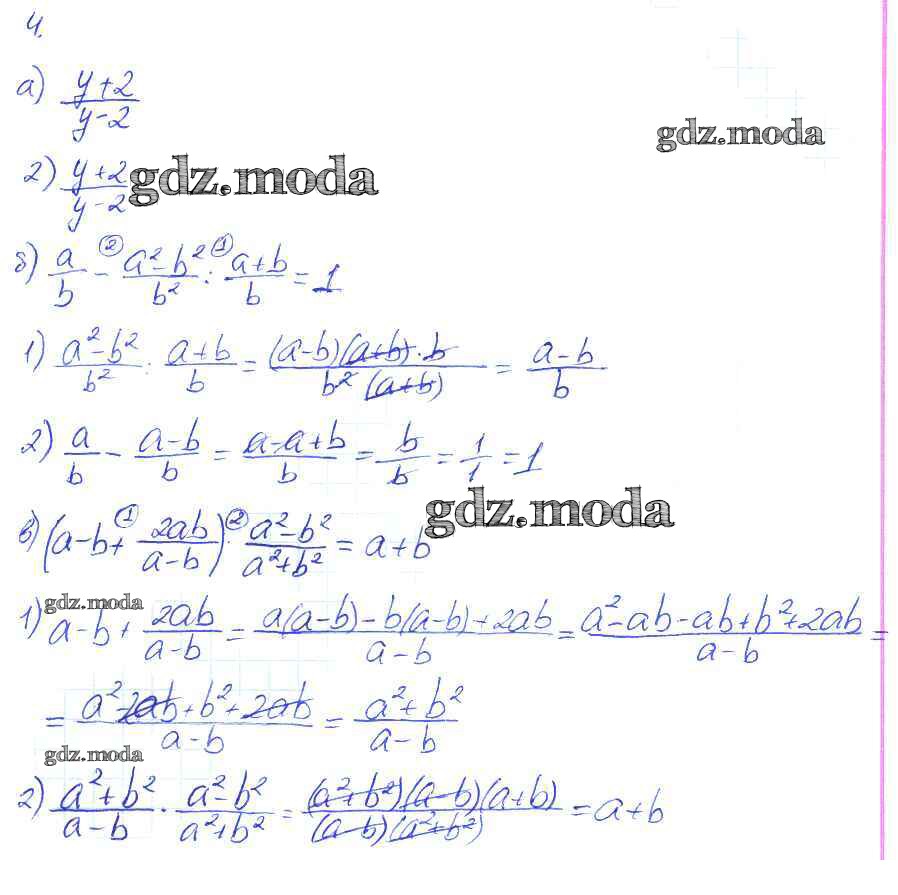 4.
а) (y+2)/(y-2)
gdz.moda
2) (y+2)/(y-2) gdz.moda
б) a/b -② (a²-b²)/b² :① (a+b)/b = 1
1) (a²-b²)/b² : (a+b)/b = ((a-b)(a+b)·b)/(b²(a+b)) = (a-b)/b
2) a/b - (a-b)/b = (a-a+b)/b = b/b = 1/1 = 1
gdz.moda
в) (a-b+① 2ab/(a-b)) ·② (a²-b²)/(a²+b²) = a+b
gdz.moda
1) a-b + 2ab/(a-b) = (a(a-b)-b(a-b)+2ab)/(a-b) = (a²-ab-ab+b²+2ab)/(a-b) =
= (a²-2ab+b²+2ab)/(a-b) = (a²+b²)/(a-b)
gdz.moda
2) (a²+b²)/(a-b) · (a²-b²)/(a²+b²) = ((a²+b²)(a-b)(a+b))/((a-b)(a²+b²)) = a+b